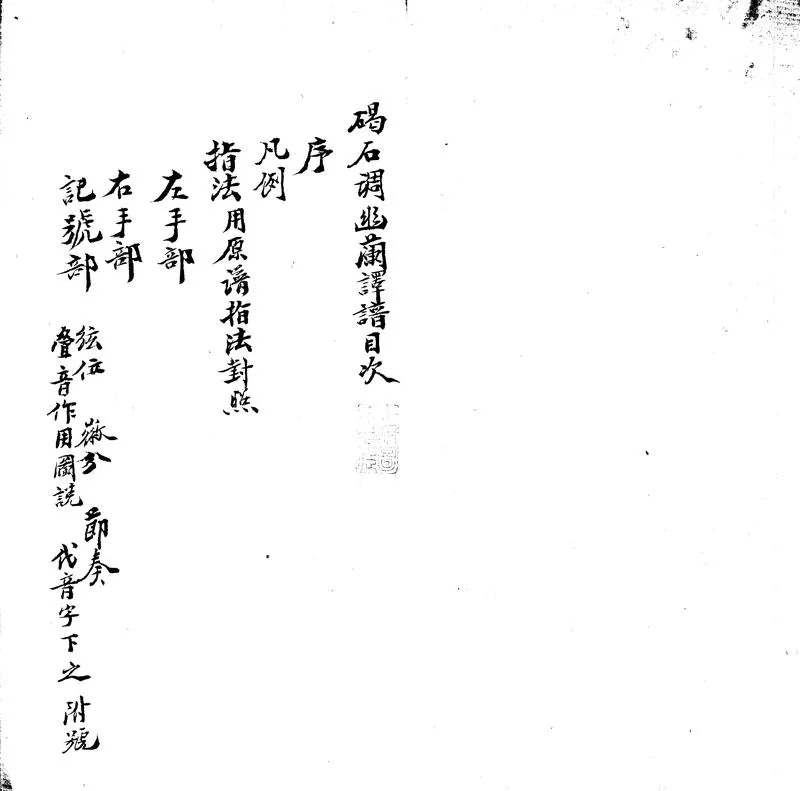 碣石调幽蘭譯譜目次
序
凡例
指法用原譜指法對照
左手部
右手部
記號部
弦位 徽分 節奏
疊音作用圖説 代音字下之附號